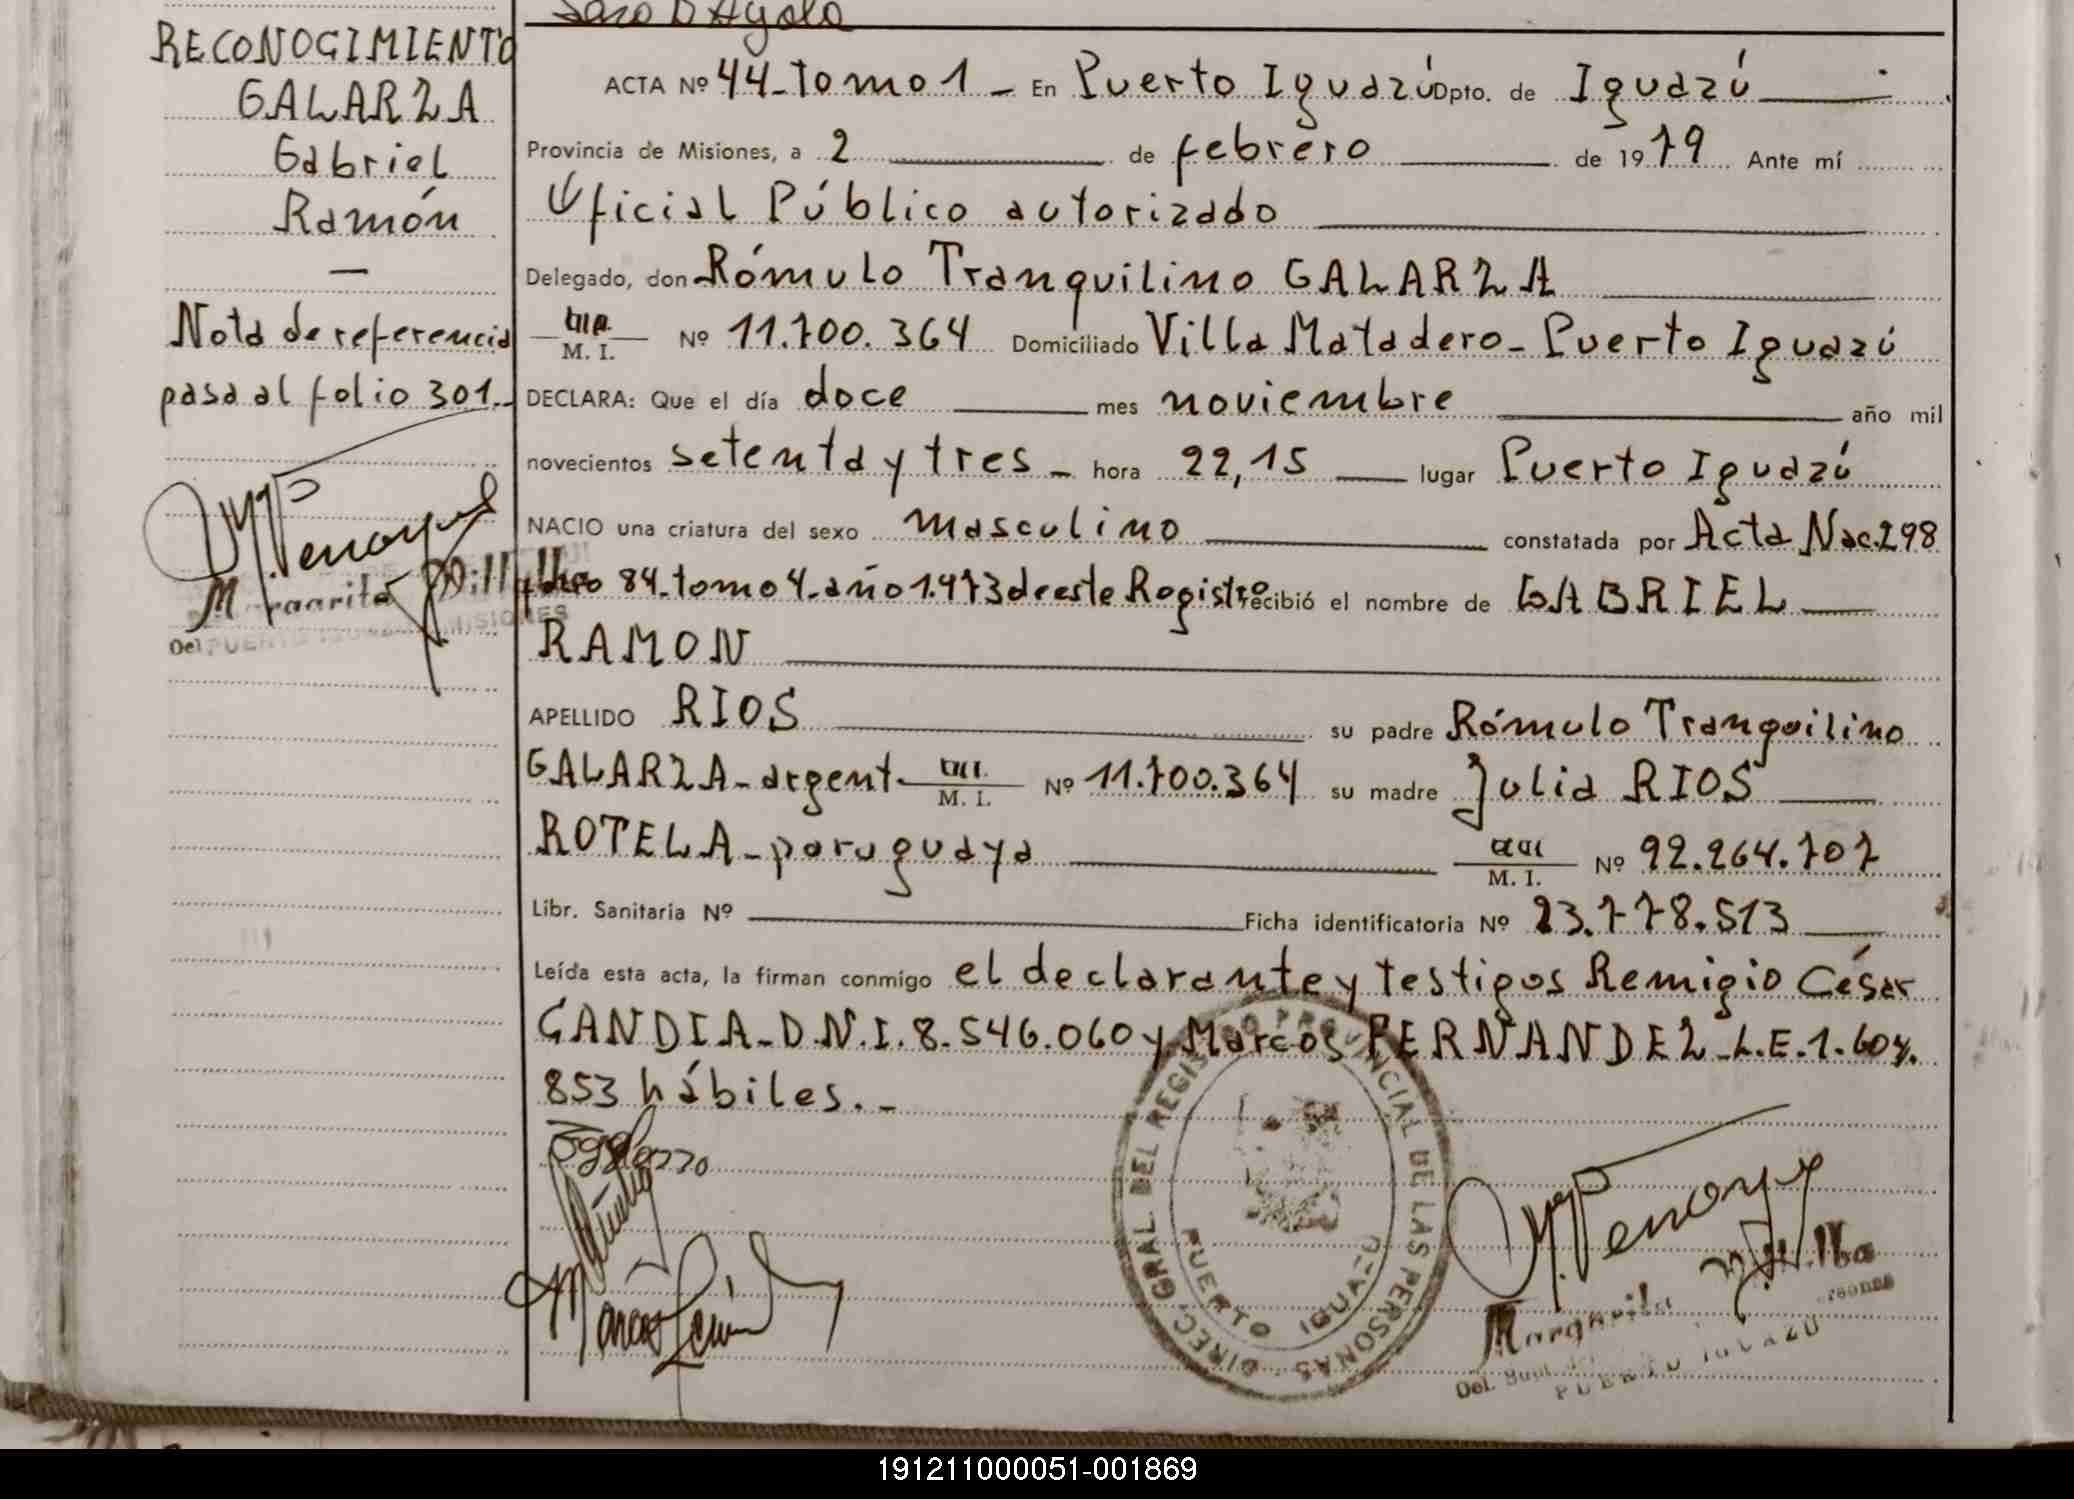 RECONOCIMIENTO
GALARZA
Gabriel
Ramón
—
Nota de referencia
pasa al folio 301.-
ACTA Nº 44-tomo 1 - En Puerto Iguazú Dpto. de Iguazú
Provincia de Misiones, a 2 de febrero de 1979 Ante mí
Oficial Público autorizado
Delegado, don Rómulo Tranquilino GALARZA
M. I. Nº 11.700.364 Domiciliado Villa Matadero - Puerto Iguazú
DECLARA: Que el día doce mes noviembre año mil
novecientos setenta y tres - hora 22,15 lugar Puerto Iguazú
NACIO una criatura del sexo masculino constatada por Acta Nac. 298
folio 84-tomo 4-año 1.973 de este Registro recibió el nombre de GABRIEL
RAMON
APELLIDO RIOS su padre Rómulo Tranquilino
GALARZA - argent. M. I. Nº 11.700.364 su madre Julia RIOS
ROTELA - paraguaya M. I. Nº 92.264.707
Libr. Sanitaria Nº Ficha identificatoria Nº 23.778.513
Leída esta acta, la firman conmigo el declarante y testigos Remigio César
CANDIA - D.N.I. 8.546.060 y Marcos FERNANDEZ - L.E. 1.604.
853 hábiles. -
DIREC. GRAL. DEL REGISTRO PROVINCIAL DE LAS PERSONAS
PUERTO IGUAZU
Margarita
Del.
PUERTO IGUAZU MISIONES
Margarita
Del.
PUERTO IGUAZU
191211000051-001869